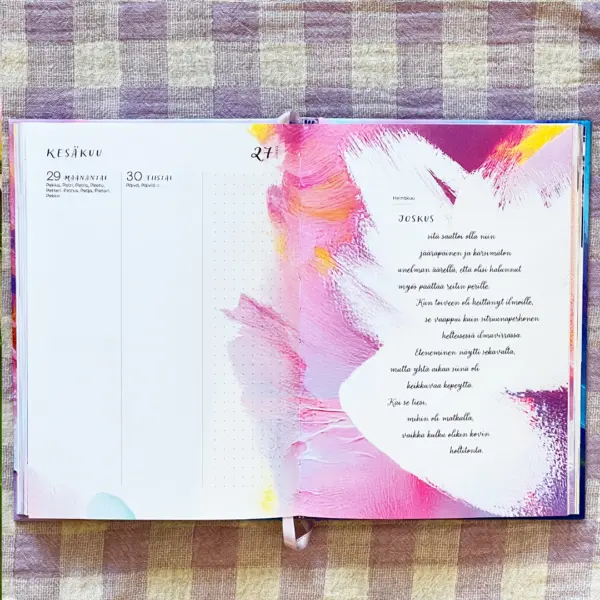 KESÄKUU
27
29 MAANANTAI
Pekka, Petri, Petra, Peetu,
Petteri, Petrus, Petja, Pietari,
Pekko
30 TIISTAI
Päivö, Päiviö
Heinäkuu
JOSKUS
sitä saattoi olla niin
jääräpäinen ja karsimaton
unelman äärellä, että olisi halunnut
myös päättää reitin perille.
Kun toiveen oli heittänyt ilmoille,
se vaappui kuin sitruunaperhonen
helteisessä ilmavirrassa.
Eteneminen näytti sekavalta,
mutta yhtä aikaa siinä oli
keikkuvaa kepeyttä.
Kai se tiesi,
mihin oli matkalla,
vaikka kulku olikin kovin
holtitonta.